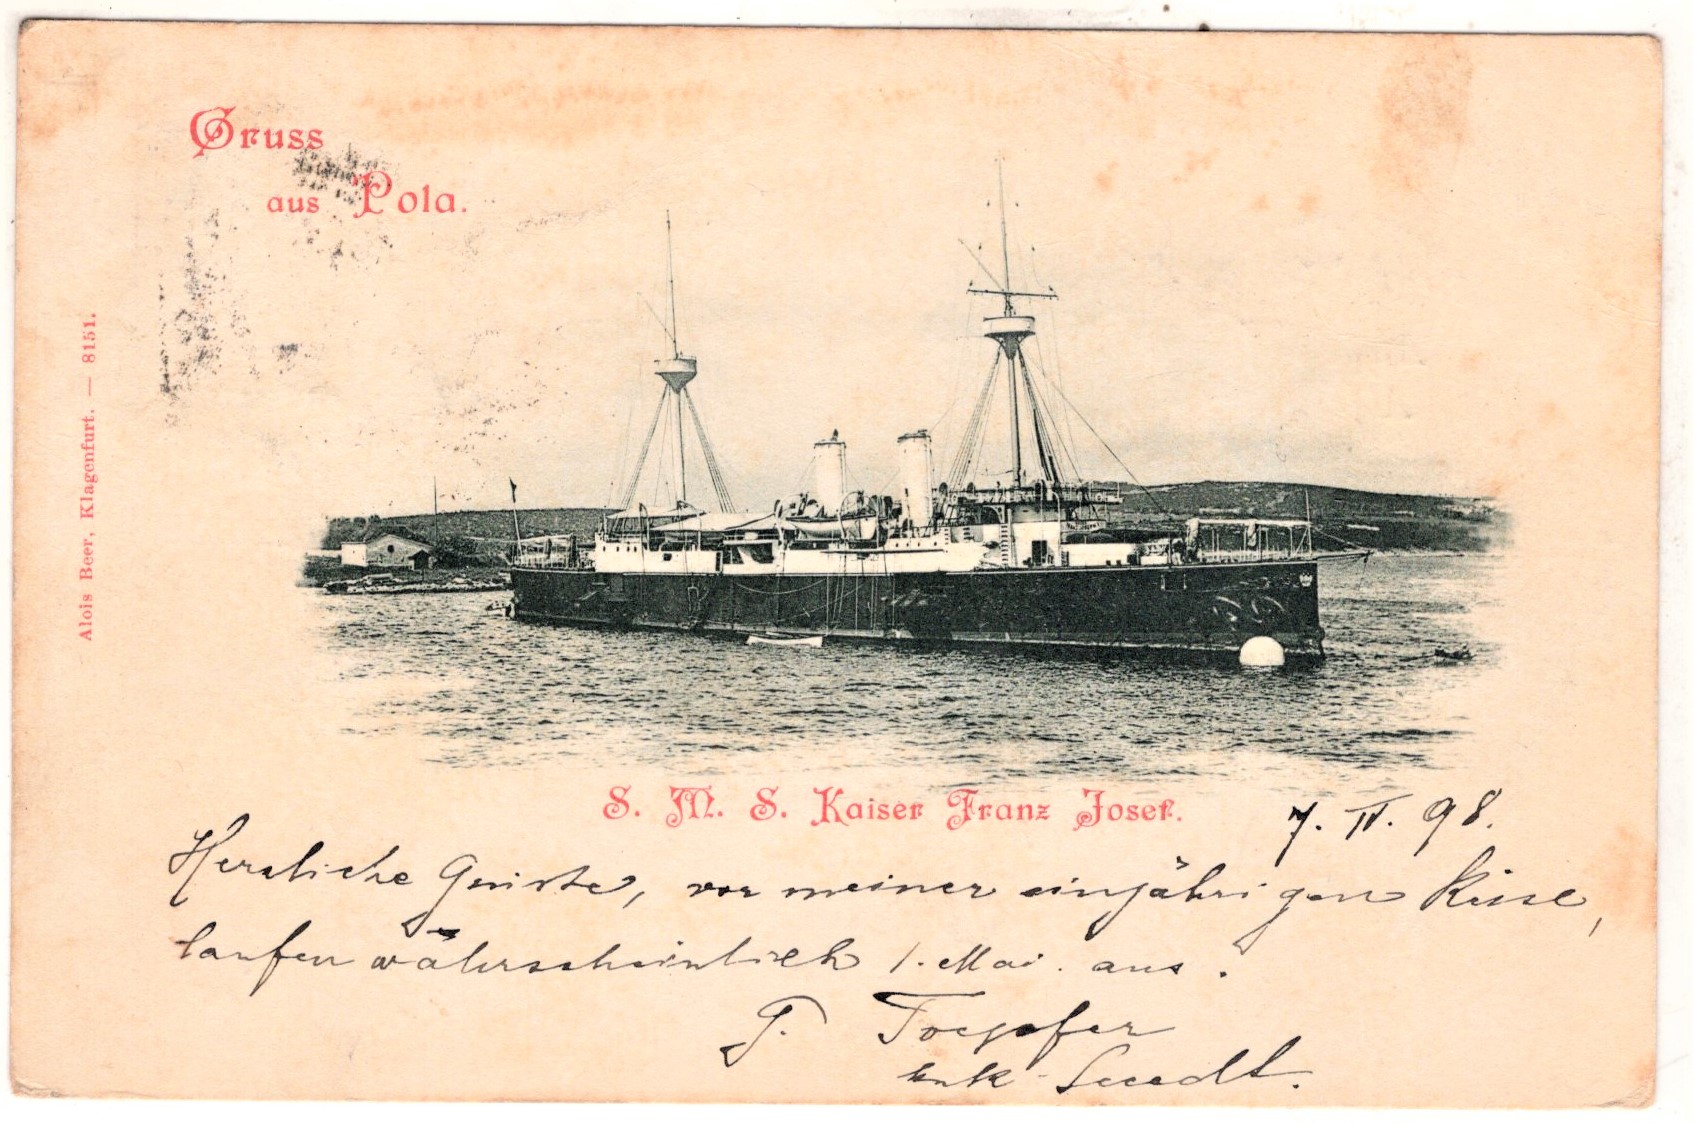 Gruss
aus Pola.
Alois Beer, Klagenfurt. — 8151.
S. M. S. Kaiser Franz Josef.
7. IV. 98.
Herzliche Grüsse, vor meiner einjährigen Reise,
laufen währscheinlich 1. Mai. aus.
G. Toepfer
kuk Seecdt.